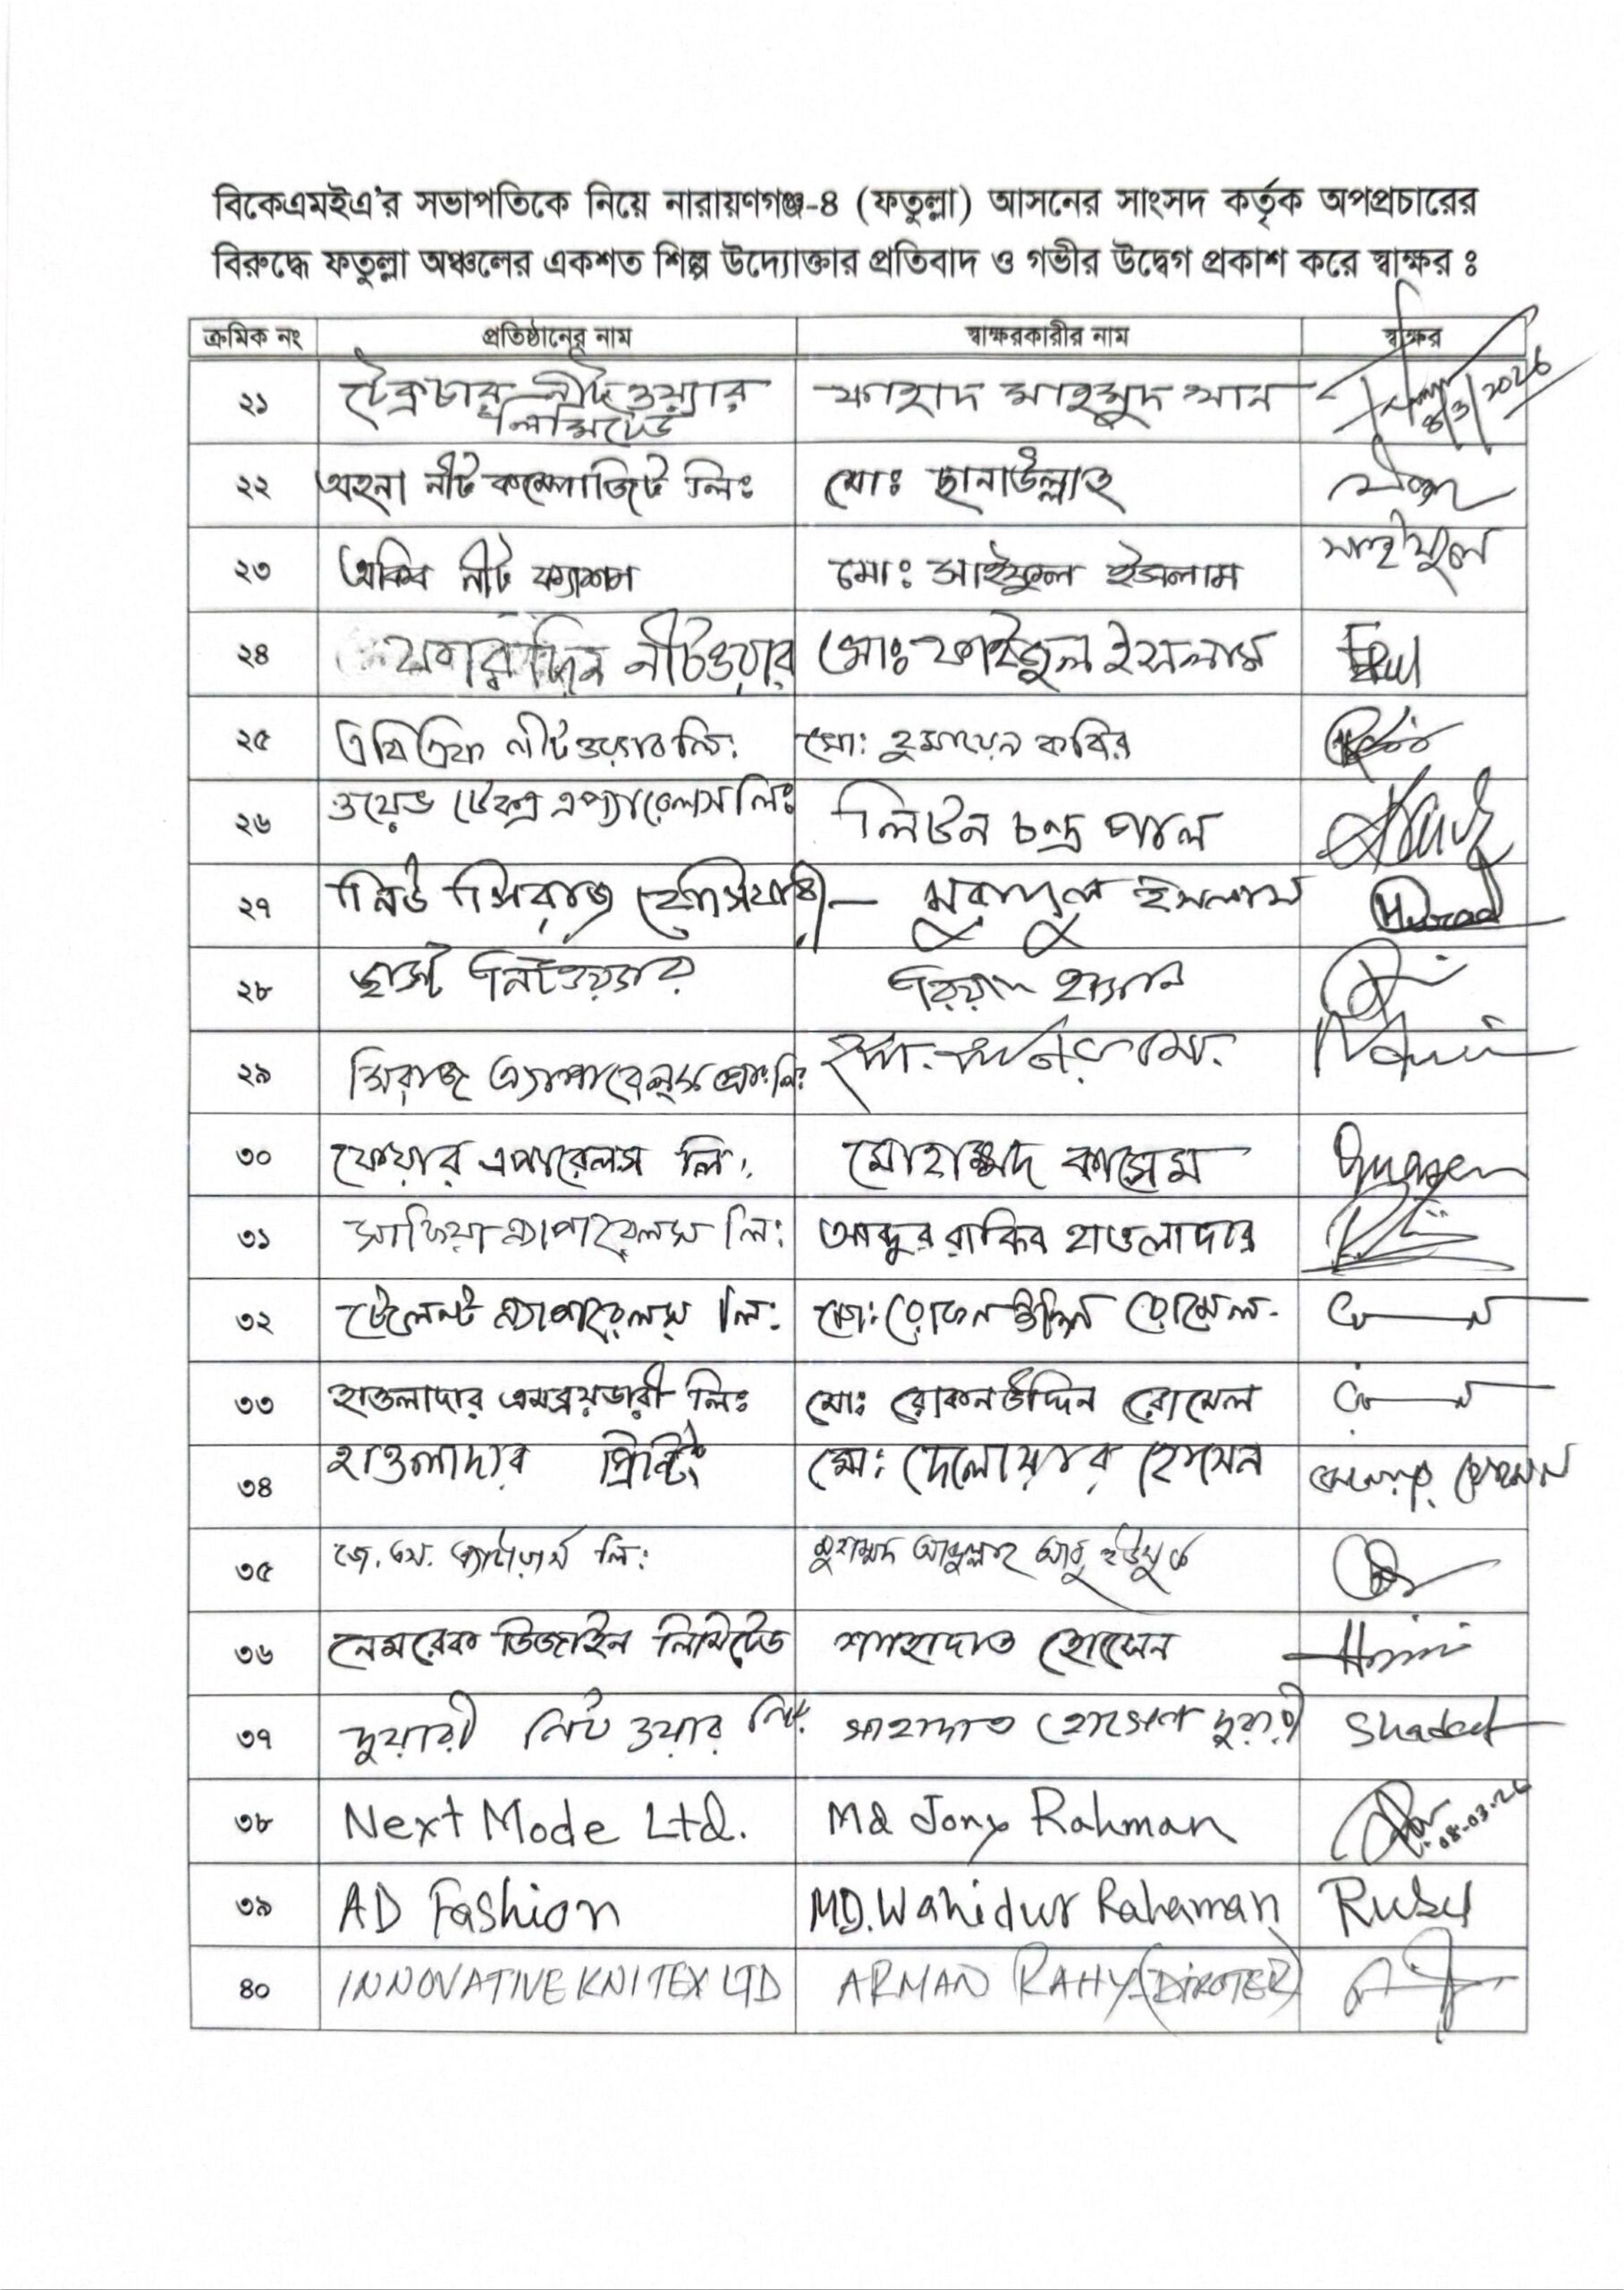 বিকেএমইএ'র সভাপতিকে নিয়ে নারায়ণগঞ্জ-৪ (ফতুল্লা) আসনের সাংসদ কর্তৃক অপপ্রচারের
বিরুদ্ধে ফতুল্লা অঞ্চলের একশত শিল্প উদ্যোক্তার প্রতিবাদ ও গভীর উদ্বেগ প্রকাশ করে স্বাক্ষর ঃ
ক্রমিক নং প্রতিষ্ঠানের নাম স্বাক্ষরকারীর নাম স্বাক্ষর
২১ নীটওয়্যার ফাহাদ মাহমুদ খান
লিমিটেড
২২ অহনা নীট কম্পোজিট লিঃ মোঃ ছানাউল্লাহ
২৩ নীট ফ্যাশন মোঃ সাইফুল ইসলাম সাইফুল
২৪ নীটওয়্যার মোঃ ইসলাম
২৫ নীটওয়্যার লি: মো: হুমায়েন কবির
২৬ ওয়েভ টেক্স এপ্যারেলস লিঃ লিটন চন্দ্র পাল
২৭ নিউ সিরাজ হোসিয়ারী ইসলাম
২৮ নিটওয়্যার হাসান
২৯ সিরাজ এ্যাপারেলস প্রো: লি:
৩০ ফেয়ার এপারেলস লি: মোহাম্মদ কাসেম
৩১ সাফিয়া এ্যাপারেলস লি: আব্দুর রাকিব হাওলাদার
৩২ টেলেন্ট এ্যাপারেলস লি: মো: রোকন উদ্দিন রোমেল
৩৩ হাওলাদার এমব্রয়ডারী লিঃ মোঃ রোকন উদ্দিন রোমেল
৩৪ হাওলাদার প্রিন্টিং মো: দেলোয়ার হোসেন
৩৫ লি: মুহাম্মদ আব্দুল্লাহ আবু ইউসুফ
৩৬ নেমরেক ডিজাইন লিমিটেড শাহাদাত হোসেন
৩৭ দুয়ারী নিট ওয়্যার লি: সাহাদাত হোসেন দুয়ারী
৩৮ Next Mode Ltd. Md Jony Rahman 08-03-26
৩৯ AD Fashion MD. Wahidur Rahaman
৪০ INNOVATIVE KNITEX LTD ARMAN RAHY (DIROTER)